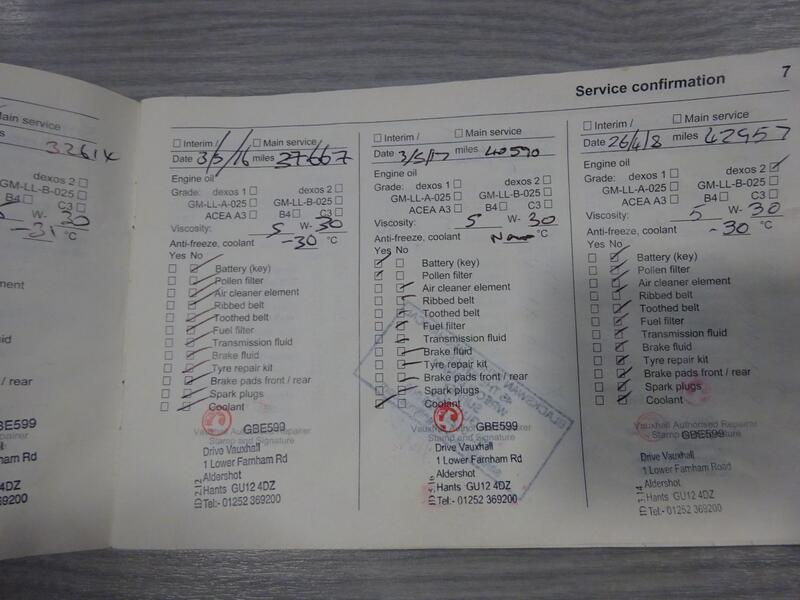 Service confirmation 7
Main service
3261
B4 C3
W- 30
-31 °C
/ rear
GBE599
Drive Vauxhall
1 Lower Farnham Rd
Aldershot
Hants GU12 4DZ
Tel:- 01252 369200
Interim / Main service
Date 3/5/16 miles 37667
Engine oil
Grade: dexos 1 dexos 2
GM-LL-A-025 GM-LL-B-025
ACEA A3 B4 C3
Viscosity: 5 W- 30
Anti-freeze, coolant -30 °C
Yes No
Battery (key)
Pollen filter
Air cleaner element
Ribbed belt
Toothed belt
Fuel filter
Transmission fluid
Brake fluid
Tyre repair kit
Brake pads front / rear
Spark plugs
Coolant
GBE599
Vauxhall Authorised Repairer
Stamp and Signature
Drive Vauxhall
1 Lower Farnham Rd
Aldershot
Hants GU12 4DZ
Tel:- 01252 369200
Interim / Main service
Date 3/5/17 miles 40590
Engine oil
Grade: dexos 1 dexos 2
GM-LL-A-025 GM-LL-B-025
ACEA A3 B4 C3
Viscosity: 5 W- 30
Anti-freeze, coolant °C
Yes No
Battery (key)
Pollen filter
Air cleaner element
Ribbed belt
Toothed belt
Fuel filter
Transmission fluid
Brake fluid
Tyre repair kit
Brake pads front / rear
Spark plugs
Coolant
GBE599
Vauxhall Authorised Repairer
Stamp and Signature
Drive Vauxhall
1 Lower Farnham Rd
Aldershot
Hants GU12 4DZ
Tel:- 01252 369200
Interim / Main service
Date 26/4/8 miles 42957
Engine oil
Grade: dexos 1 dexos 2
GM-LL-A-025 GM-LL-B-025
ACEA A3 B4 C3
Viscosity: 5 W- 30
Anti-freeze, coolant -30 °C
Yes No
Battery (key)
Pollen filter
Air cleaner element
Ribbed belt
Toothed belt
Fuel filter
Transmission fluid
Brake fluid
Tyre repair kit
Brake pads front / rear
Spark plugs
Coolant
Vauxhall Authorised Repairer
Stamp GBE599 Signature
Drive Vauxhall
1 Lower Farnham Road
Aldershot
Hants GU12 4DZ
Tel:- 01252 369200